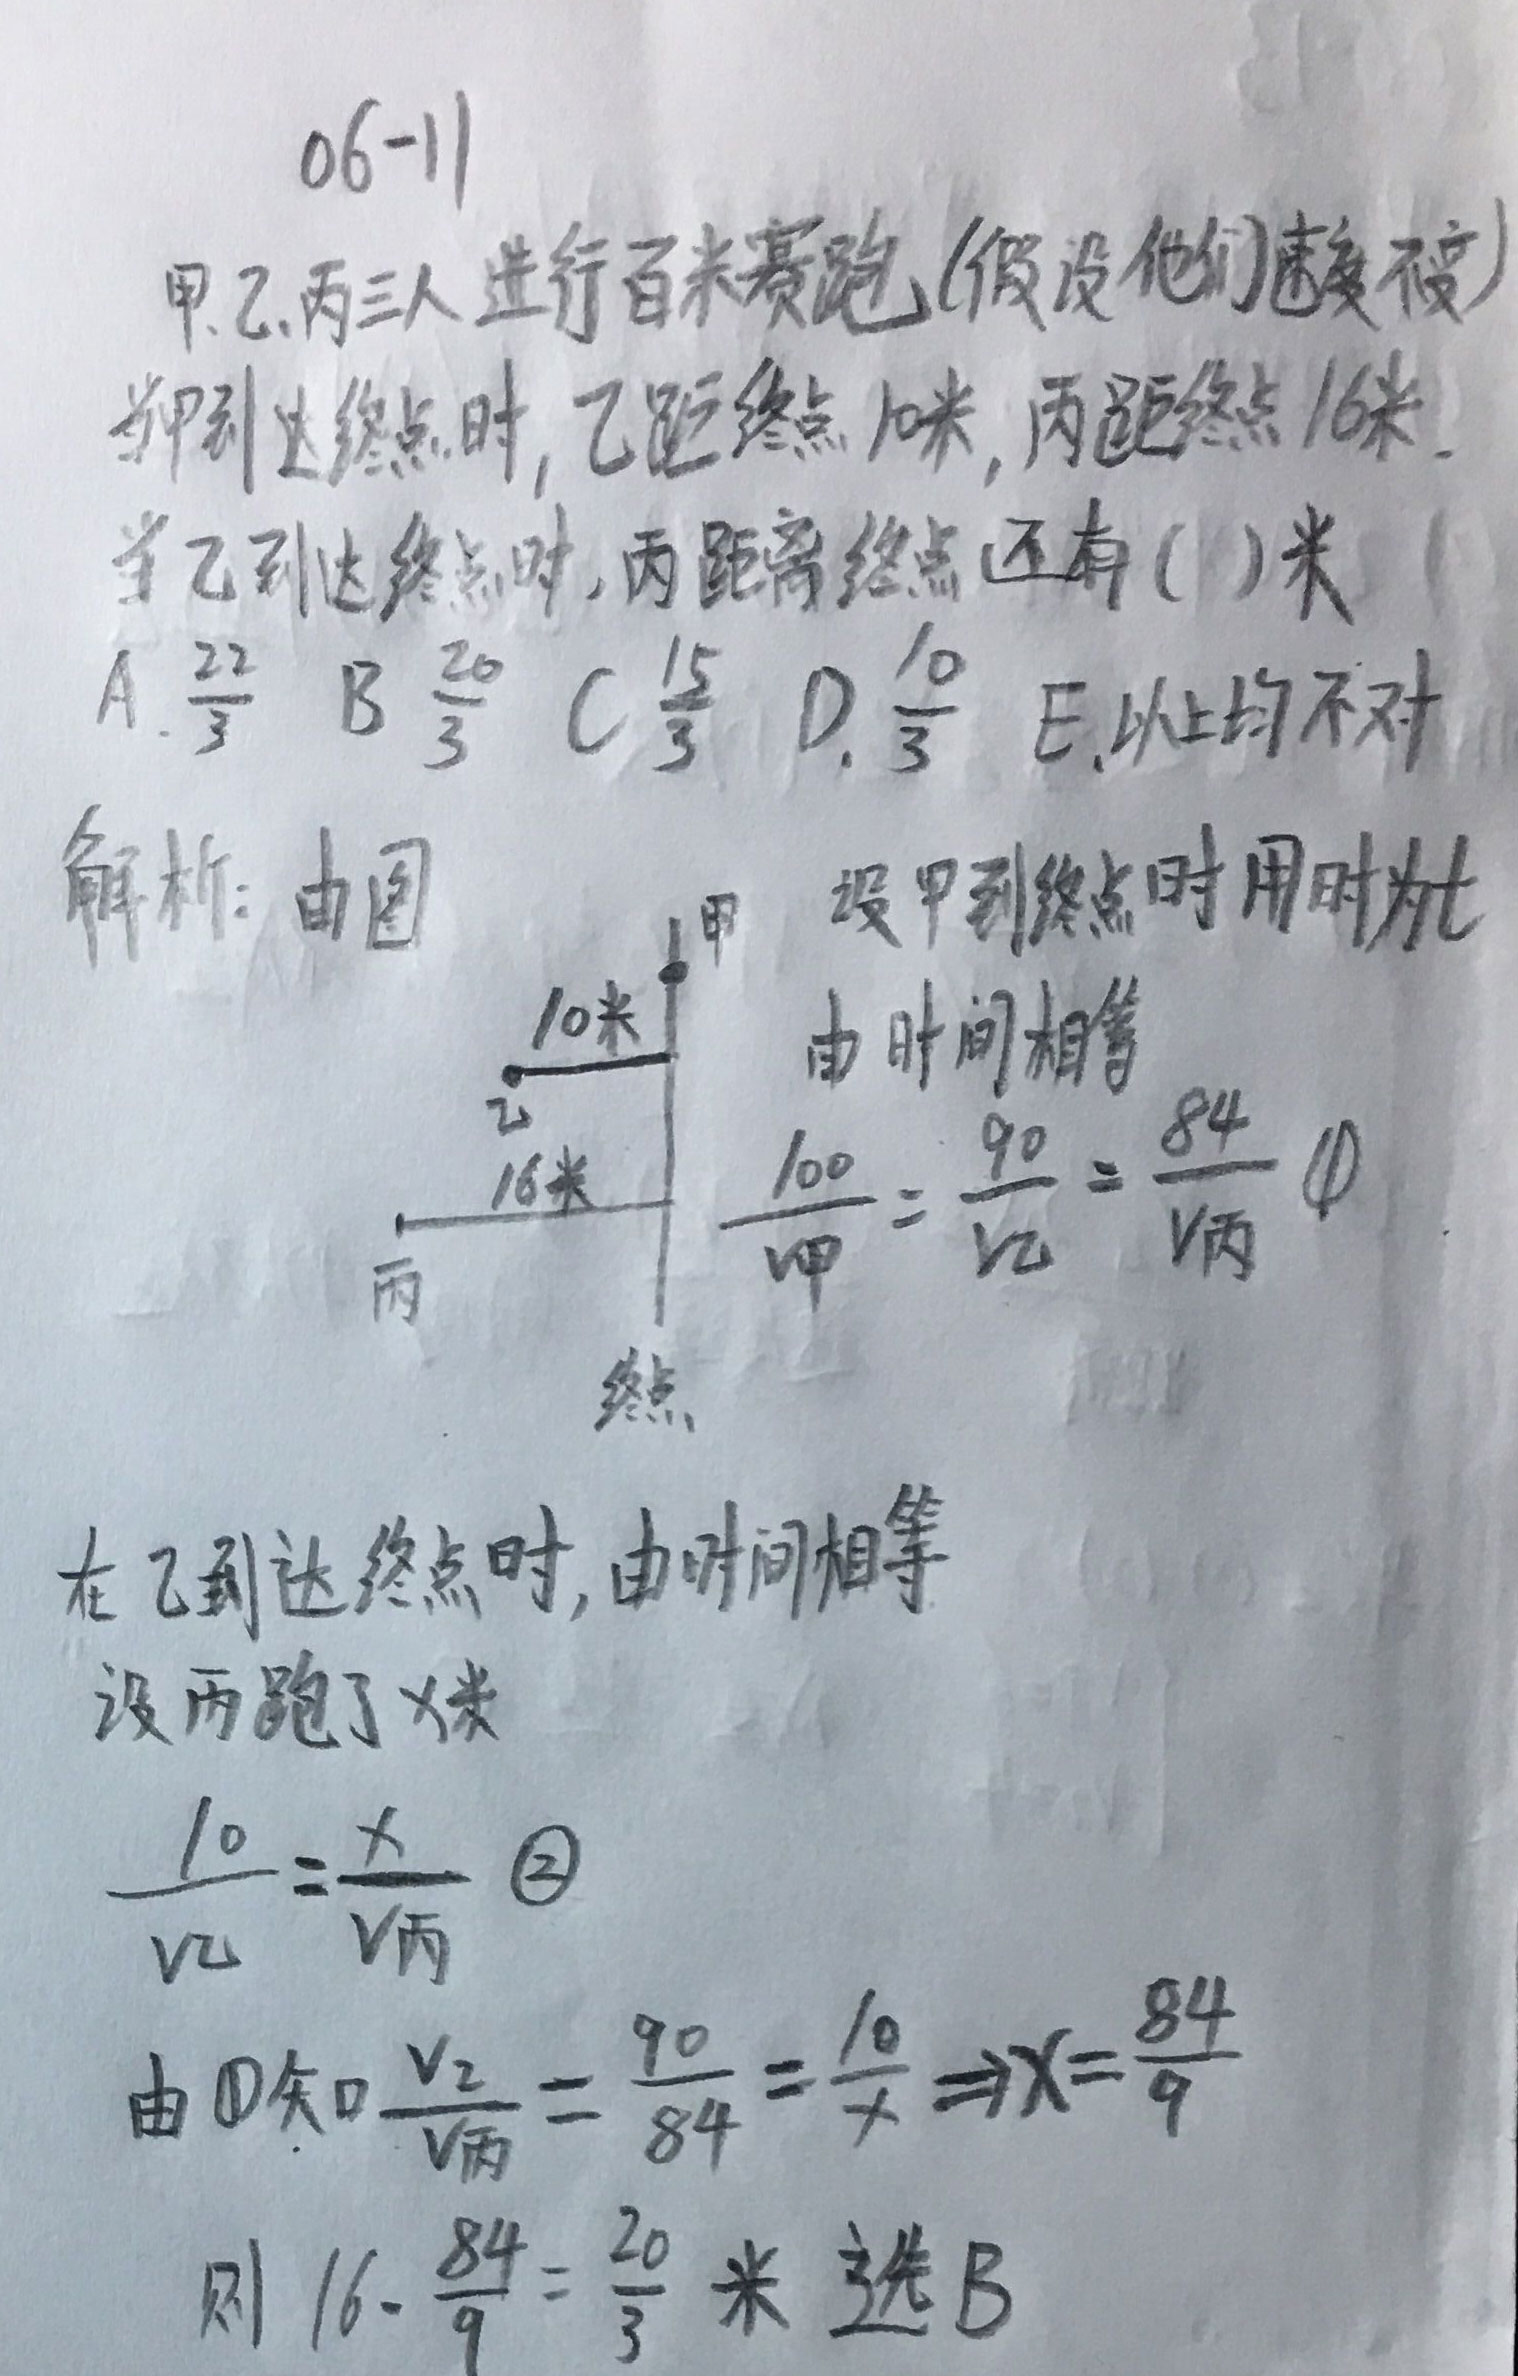 06-11
甲.乙.丙三人进行百米赛跑(假设他们速度不变)
当甲到达终点时,乙距终点10米,丙距终点16米.
当乙到达终点时,丙距离终点还有( )米
A. 22/3 B 20/3 C 15/3 D. 10/3 E.以上均不对
解析:由图 设甲到终点时用时为t
甲
10米 由时间相等
乙
16米 100/V甲 = 90/V乙 = 84/V丙 ①
丙
终点
在乙到达终点时,由时间相等
设丙跑了x米
10/V乙 = x/V丙 ②
由①知 V乙/V丙 = 90/84 = 10/x ⇒ x = 84/9
则 16 - 84/9 = 20/3 米 选B